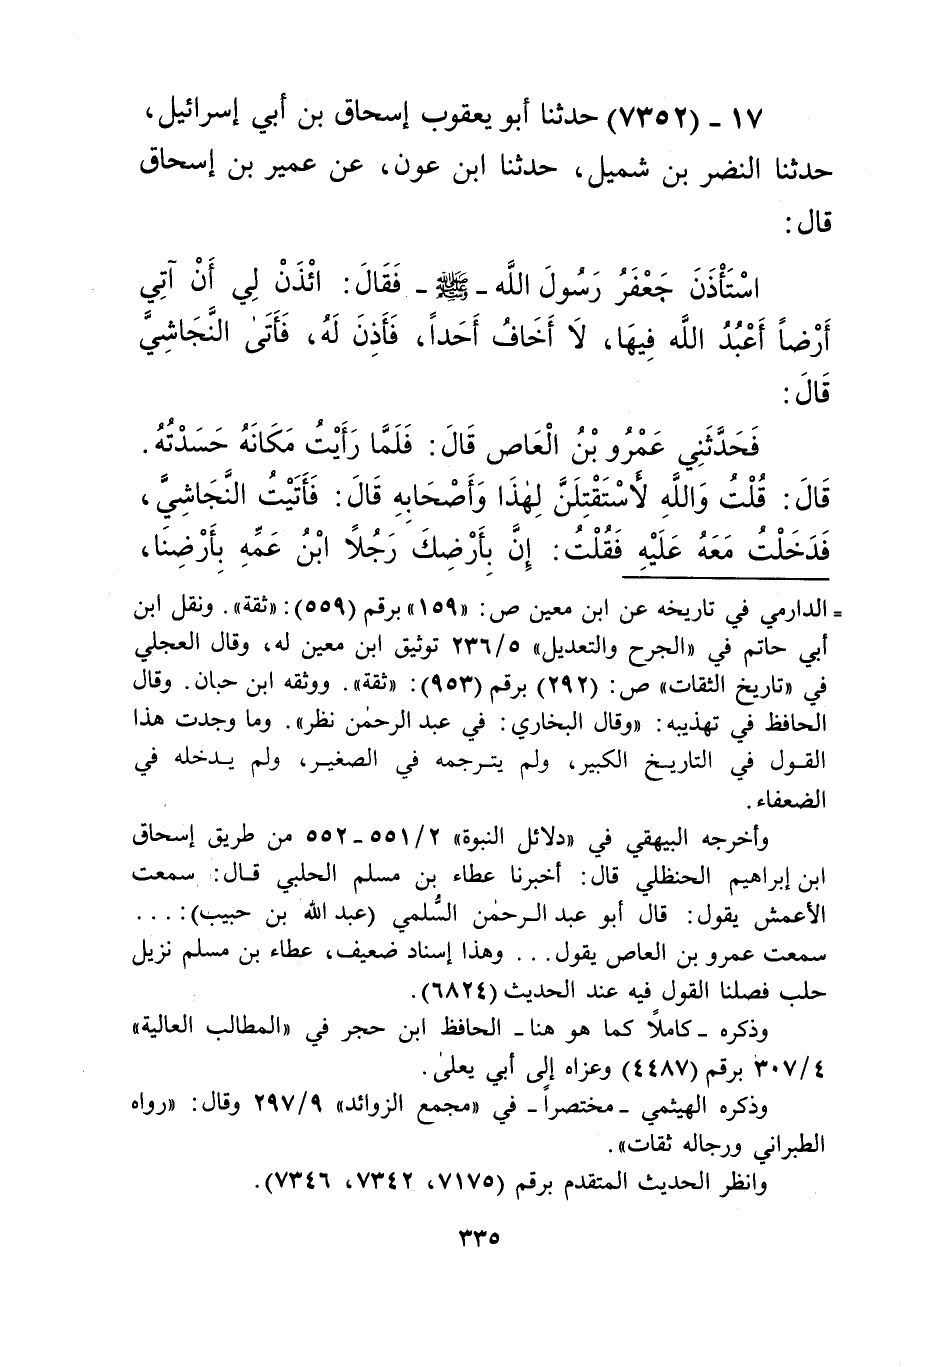 ١٧ ـ (٧٣٥٢) حدثنا أبو يعقوب إسحاق بن أبي إسرائيل،
حدثنا النضر بن شميل، حدثنا ابن عون، عن عمير بن إسحاق
قال:
اسْتَأْذَنَ جَعْفَرُ رَسُولَ اللَّه ـ ﷺ ـ فَقَالَ: ائْذَنْ لِي أَنْ آتِي
أَرْضاً أَعْبُدُ اللَّه فِيهَا، لَا أَخَافُ أَحَداً، فَأَذِنَ لَهُ، فَأَتَىٰ النَّجَاشِيَّ
قَالَ:
فَحَدَّثَنِي عَمْرُو بْنُ الْعَاص قَالَ: فَلَمَّا رَأَيْتُ مَكَانَهُ حَسَدْتُهُ.
قَالَ: قُلْتُ وَاللَّهِ لَأَسْتَقْتِلَنَّ لِهٰذَا وَأَصْحَابِهِ قَالَ: فَأَتَيْتُ النَّجَاشِيَّ،
فَدَخَلْتُ مَعَهُ عَلَيْهِ فَقُلْتُ: إِنَّ بِأَرْضِكَ رَجُلًا ابْنُ عَمِّهِ بِأَرْضِنَا،
= الدارمي في تاريخه عن ابن معين ص: «١٥٩» برقم (٥٥٩): «ثقة». ونقل ابن
أبي حاتم في «الجرح والتعديل» ٢٣٦/٥ توثيق ابن معين له، وقال العجلي
في «تاريخ الثقات» ص: (٢٩٢) برقم (٩٥٣): «ثقة». ووثقه ابن حبان. وقال
الحافظ في تهذيبه: «وقال البخاري: في عبد الرحمٰن نظر». وما وجدت هذا
القول في التاريخ الكبير، ولم يترجمه في الصغير، ولم يدخله في
الضعفاء.
وأخرجه البيهقي في «دلائل النبوة» ٥٥١/٢ ـ ٥٥٢ من طريق إسحاق
ابن إبراهيم الحنظلي قال: أخبرنا عطاء بن مسلم الحلبي قال: سمعت
الأعمش يقول: قال أبو عبد الرحمٰن السُّلمي (عبد الله بن حبيب): ...
سمعت عمرو بن العاص يقول... وهذا إسناد ضعيف، عطاء بن مسلم نزيل
حلب فصلنا القول فيه عند الحديث (٦٨٢٤).
وذكره ـ كاملًا كما هو هنا ـ الحافظ ابن حجر في «المطالب العالية»
٣٠٧/٤ برقم (٤٤٨٧) وعزاه إلى أبي يعلىٰ.
وذكره الهيثمي ـ مختصراً ـ في «مجمع الزوائد» ٢٩٧/٩ وقال: «رواه
الطبراني ورجاله ثقات».
وانظر الحديث المتقدم برقم (٧١٧٥، ٧٣٤٢، ٧٣٤٦).
٣٣٥